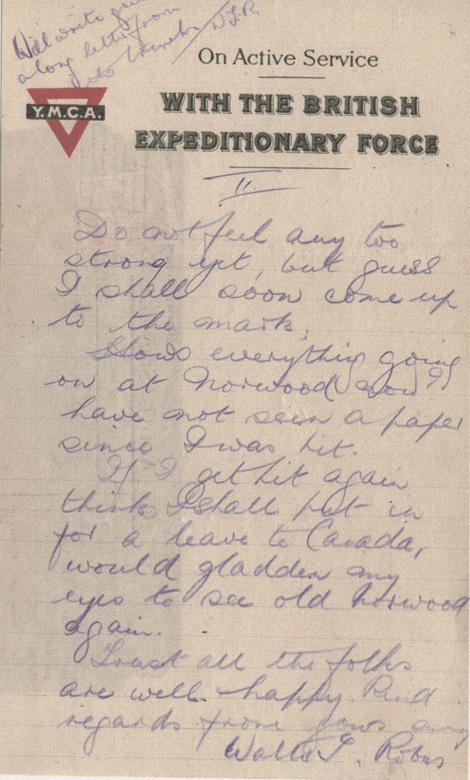 Will write you
a long letter from
On Active Service
Y.M.C.A.
WITH THE BRITISH
EXPEDITIONARY FORCE
II
Do not feel any too
strong yet, but guess
I shall soon come up
to the mark.
Hows everything going
on at Norwood now?
have not seen a paper
since I was hit.
If I get hit again
think I shall put in
for a leave to Canada,
would gladden my
eyes to see old Norwood
again.
Trust all the folks
are well & happy. Kind
regards from yours